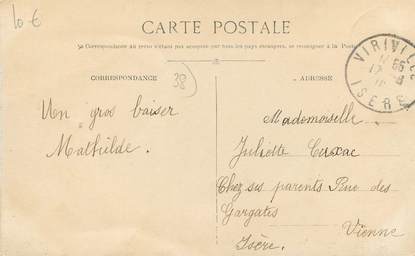 10 €
CARTE POSTALE
La Correspondance au recto n'étant pas acceptée par tous les pays étrangers, se renseigner à la Poste
CORRESPONDANCE
38
ADRESSE
VIRIVILLE
ISERE
Un gros baiser
Mathilde.
Mademoiselle
Juliette
Chez ses parents Rue des
Gargates
Vienne
Isère.